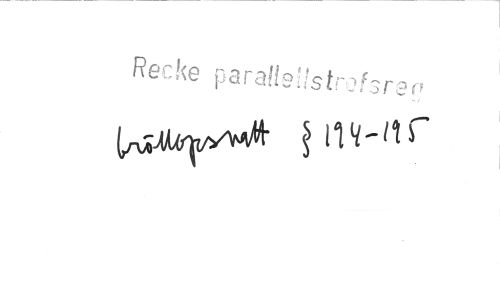 Recke parallellstrofsreg
bröllopsnatt § 194-195